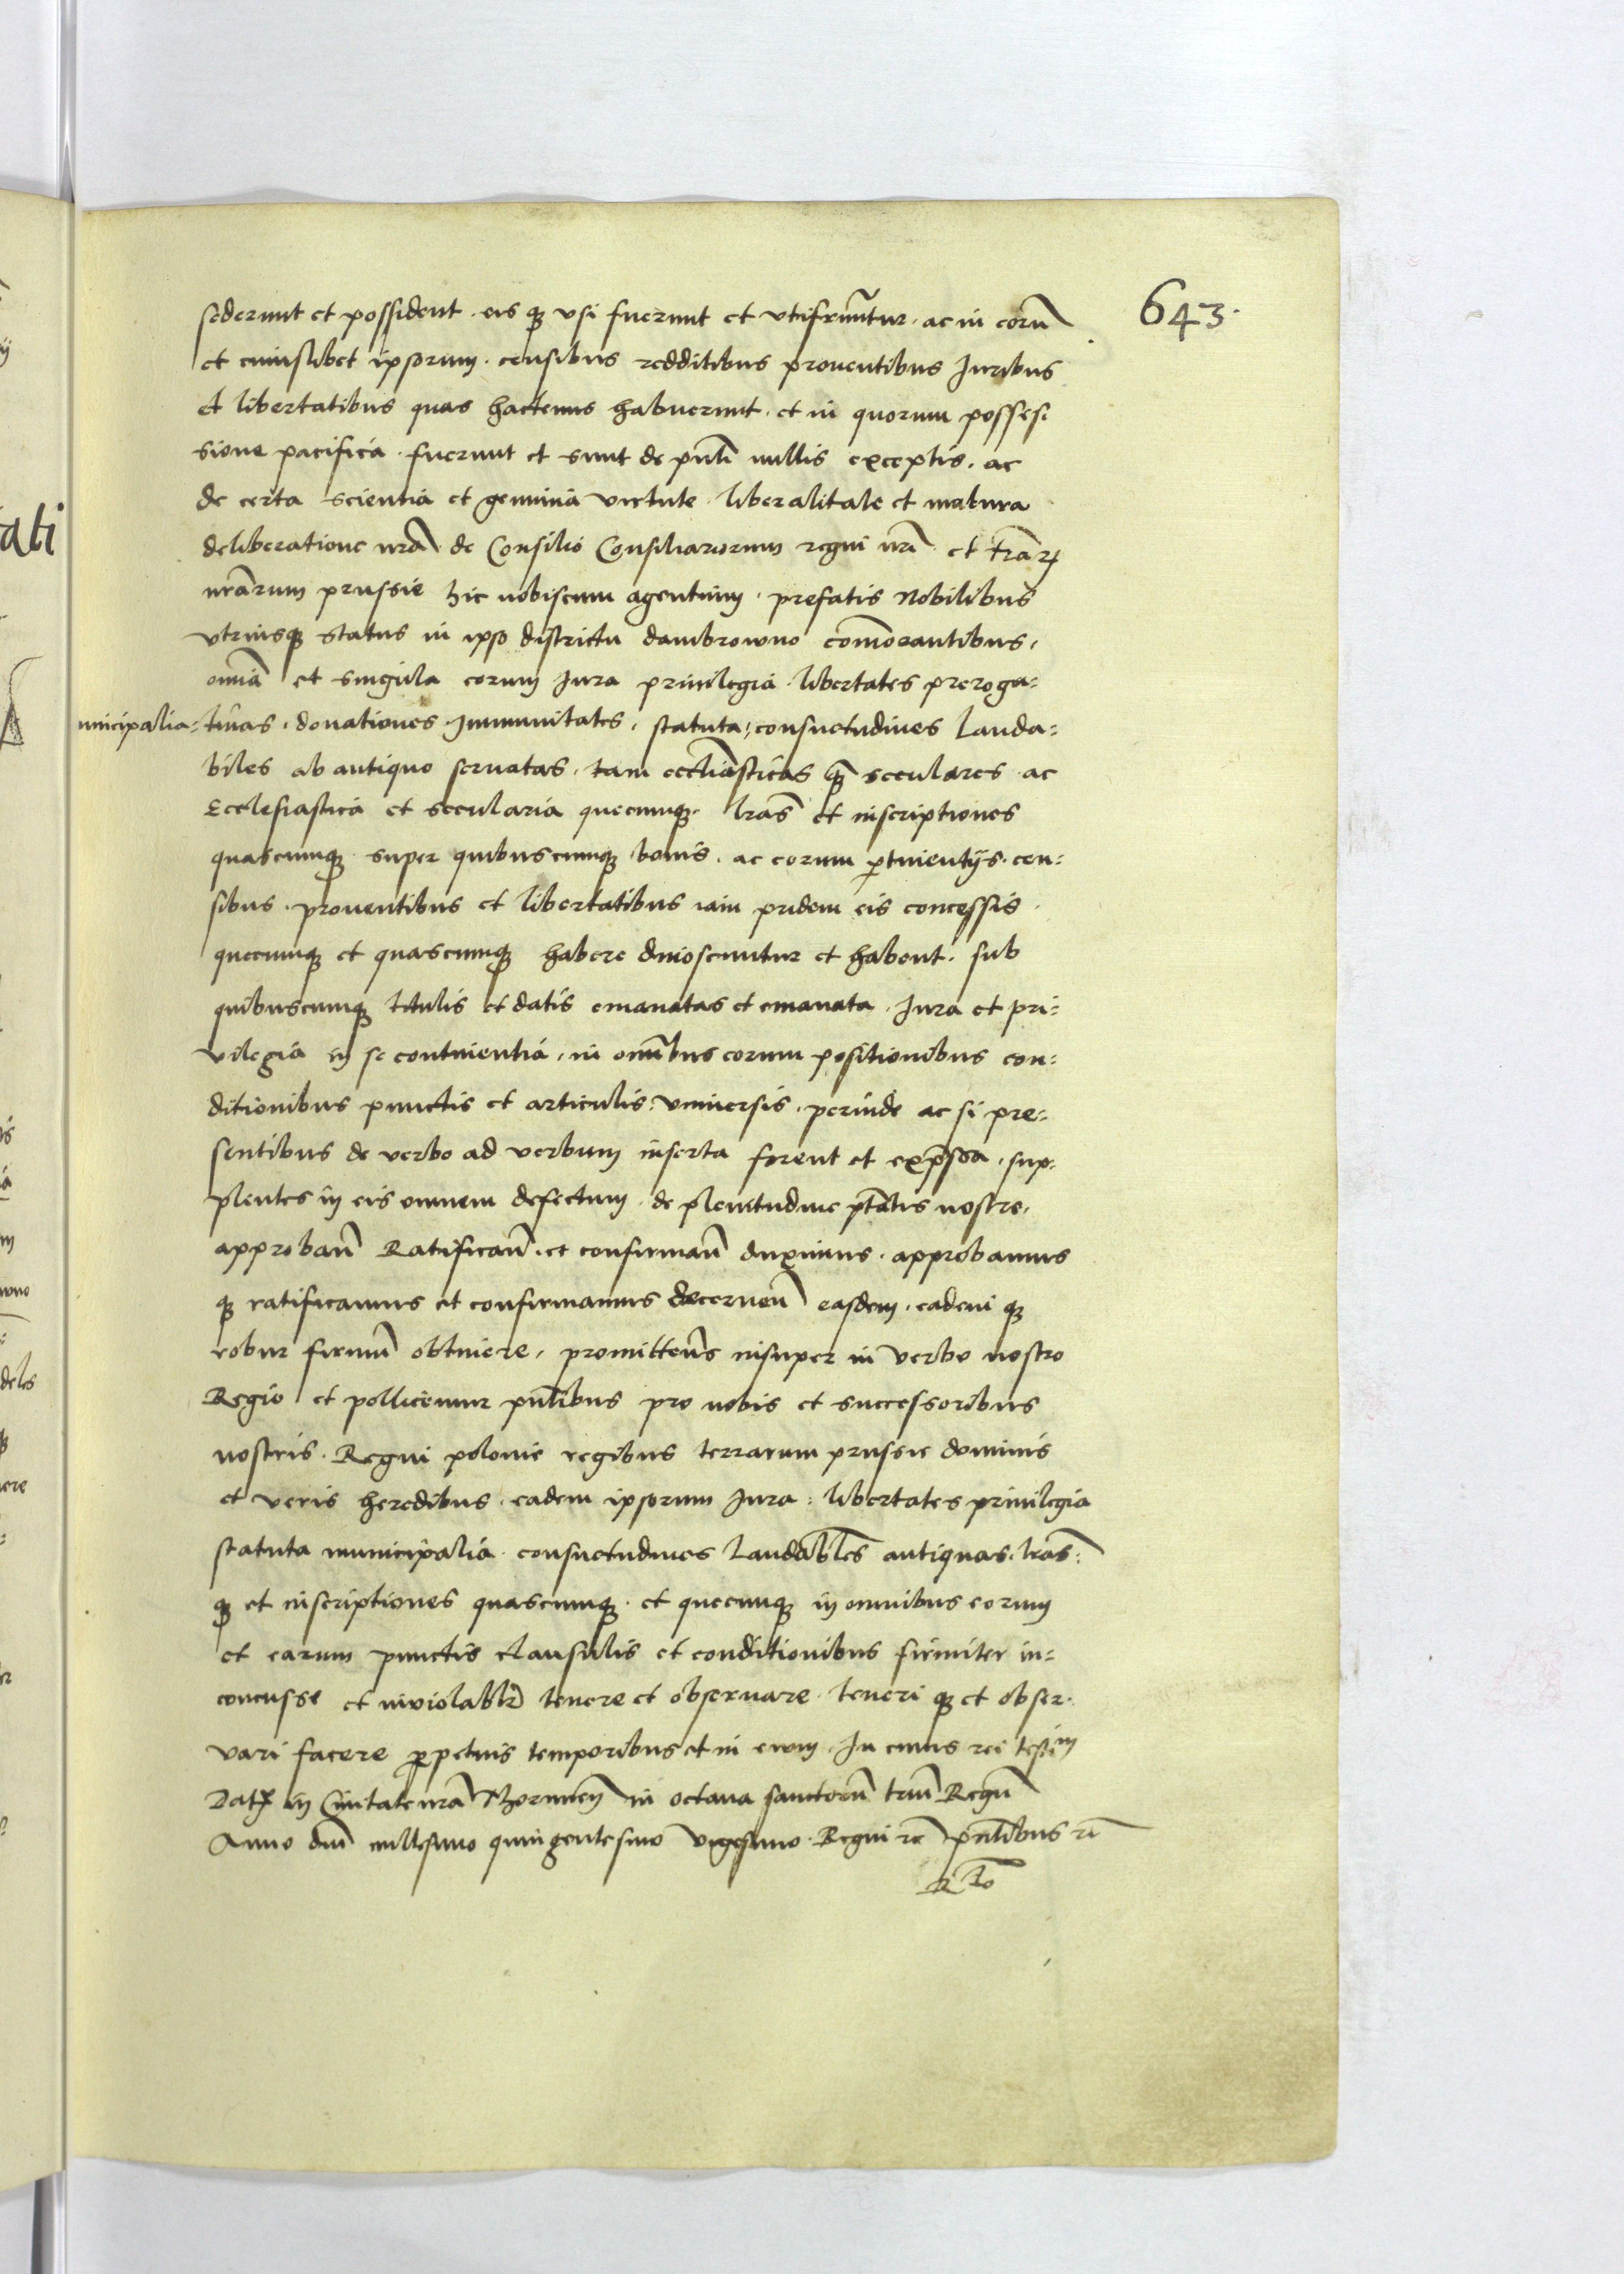 643.
sederunt et possident. eis q3 usi fuerunt et utifruūtur. ac in eorū
et cuiuslibet ipsorum. censibus redditibus prouentibus Juribus
et libertatibus quas hactenus habuerunt. et in quorum posses
sione pacifica. fuerunt et sunt de pn̄ti nullis exceptis. ac
de certa scientia et genuina virtute. liberalitate et matura
deliberatione nrā de Consilio Consiliariorum regni nrī et trārꝝ
nrārum prussie hic nobiscum agentium. prefatis Nobilibus
vtriusq3 status in ipso districtu dambrowno com̄orantibus.
omīa et singula eorum Jura priuilegia. libertates preroga=
unicipalia=
tiuas. donationes Jmmunitates. statuta: consuetudines Lauda=
biles ab antiquo seruatas. tam eccl̄iasticas q̄3 seculares ac
Ecclesiastica et secularia quecunq3. lrās et inscriptiones
quascunq3 super quibuscunq3 bonis. ac eorum ꝑtinentijs. cen=
sibus. prouentibus et libertatibus iam pridem eis concessis.
quecunq3 et quascunq3 habere dinoscuntur et habent. sub
quibuscunq3 titulis et datis emanatas et emanata. Jura et pri=
vilegia in se continentia. in omn̄ibus eorum positionibus con=
ditionibus punctis et articulis: vniuersis. perinde ac si pre=
sentibus de verbo ad verbum inserta forent et exp̄ssa. sup=
plentes in eis omnem defectum. de plenitudine ptātis nostre.
approban̄ Ratifican̄. et confirman̄ duximus. approbamus
q3 ratificamus et confirmamus decernen̄ easdem. eadem q3
robur firmū obtinere. promitten̄s insuper in verbo nostro
Regio et pollicemur pn̄tibus pro nobis et successoribus
nostris. Regni polonie regibus terrarum prussie dominis
et veris heredibus. eadem ipsorum Jura: libertates priuilegia
statuta municipalia. consuetudines Laudabl̄es antiquas. lrās:
q3 et inscriptiones quascunq3. et quecunq3 in omnibus eorum
et earum punctis clausulis et conditionibus firmiter in=
concusse et inviolablr̄ tenere et obseruare. teneri q3 et obser=
vari facere ꝑpetuis temporibus et in euum. Jn cuius rei testim
Datꝝ in Ciuitate nrā Thorunen̄ in octaua sanctorū triū Regū
Anno dnī millesimo quingentesimo vigesimo. Regni rc̄ pn̄tibus rc̄
R To